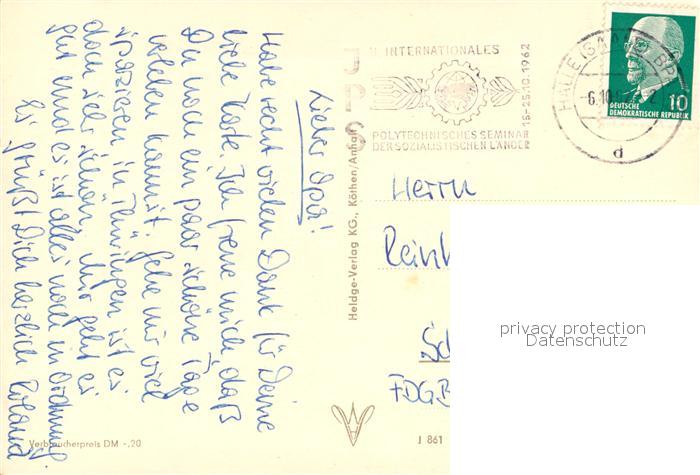 Lieber Opa!
Habe recht vielen Dank für Deine
liebe Karte. Ich freue mich, daß
Du noch ein paar schöne Tage
erleben kannst. Gehe nur viel
spazieren, in Thüringen ist es
doch sehr schön. Mir geht es
gut und es ist alles noch in Ordnung
Es grüßt Dich herzlich Roland
Verbraucherpreis DM -,20
Heldge-Verlag KG., Köthen/Anhalt
J 861
II. INTERNATIONALES
JPS
16-25.10.1962
POLYTECHNISCHES SEMINAR
DER SOZIALISTISCHEN LÄNDER
HALLE (S
BPA
-6.10
d
10
DEUTSCHE
DEMOKRATISCHE REPUBLIK
Herrn
Rein
FDGB
privacy protection
Datenschutz